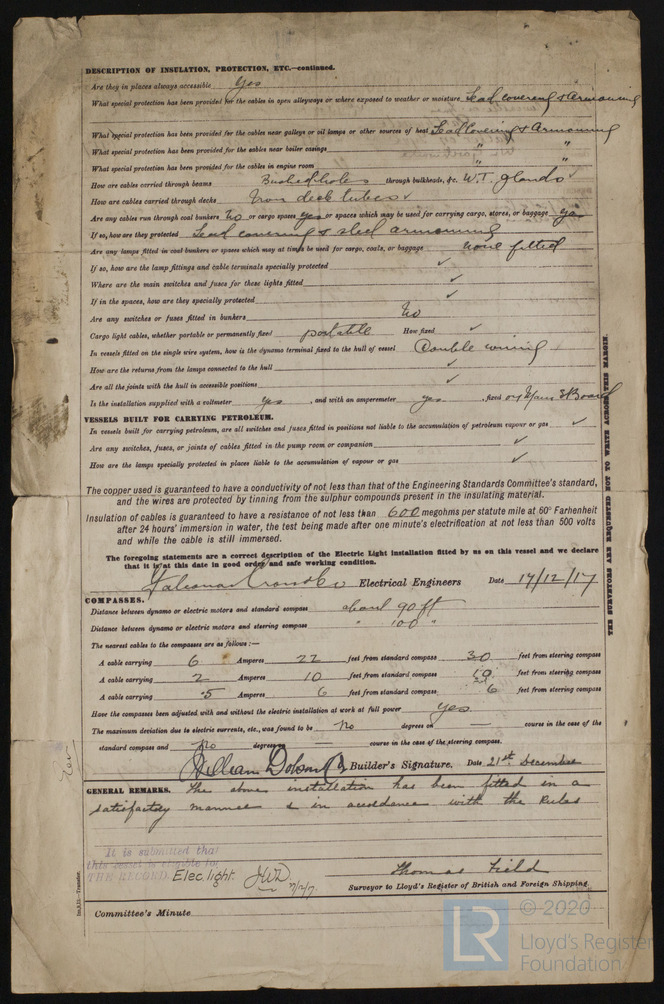 DESCRIPTION OF INSULATION, PROTECTION, ETC.—continued.
Are they in places always accessible Yes
What special protection has been provided for the cables in open alleyways or where exposed to weather or moisture Lead covering & Armouring
What special protection has been provided for the cables near galleys or oil lamps or other sources of heat Lead Covering & Armouring
What special protection has been provided for the cables near boiler casings " "
What special protection has been provided for the cables in engine room " "
How are cables carried through beams Bushed holes through bulkheads, &c. W.T. glands ✓
How are cables carried through decks Iron deck tubes ✓
Are any cables run through coal bunkers No or cargo spaces yes or spaces which may be used for carrying cargo, stores, or baggage yes
If so, how are they protected Lead covering & steel armouring
Are any lamps fitted in coal bunkers or spaces which may at times be used for cargo, coals, or baggage none fitted
If so, how are the lamp fittings and cable terminals specially protected ✓
Where are the main switches and fuses for these lights fitted ✓
If in the spaces, how are they specially protected ✓
Are any switches or fuses fitted in bunkers No
Cargo light cables, whether portable or permanently fixed portable How fixed ✓
In vessels fitted on the single wire system, how is the dynamo terminal fixed to the hull of vessel Double wiring
How are the returns from the lamps connected to the hull ✓
Are all the joints with the hull in accessible positions ✓
Is the installation supplied with a voltmeter yes, and with an amperemeter yes, fixed on Main S Board
VESSELS BUILT FOR CARRYING PETROLEUM.
In vessels built for carrying petroleum, are all switches and fuses fitted in positions not liable to the accumulation of petroleum vapour or gas ✓
Are any switches, fuses, or joints of cables fitted in the pump room or companion ✓
How are the lamps specially protected in places liable to the accumulation of vapour or gas ✓
The copper used is guaranteed to have a conductivity of not less than that of the Engineering Standards Committee's standard,
and the wires are protected by tinning from the sulphur compounds present in the insulating material.
Insulation of cables is guaranteed to have a resistance of not less than 600 megohms per statute mile at 60° Farhenheit
after 24 hours' immersion in water, the test being made after one minute's electrification at not less than 500 volts
and while the cable is still immersed.
The foregoing statements are a correct description of the Electric Light installation fitted by us on this vessel and we declare
that it is at this date in good order and safe working condition.
Electrical Engineers Date 17/12/17
COMPASSES.
Distance between dynamo or electric motors and standard compass about 90 ft
Distance between dynamo or electric motors and steering compass " 100 "
The nearest cables to the compasses are as follows:—
A cable carrying 6 Amperes 22 feet from standard compass 30 feet from steering compass
A cable carrying 2 Amperes 10 feet from standard compass 10 feet from steering compass
A cable carrying .5 Amperes 6 feet from standard compass 6 feet from steering compass
Have the compasses been adjusted with and without the electric installation at work at full power Yes
The maximum deviation due to electric currents, etc., was found to be No degrees on — course in the case of the
standard compass and No degrees on — course in the case of the steering compass.
William Dobson & Co Builder's Signature. Date 21st December
GENERAL REMARKS. The above installation has been fitted in a
satisfactory manner & in accordance with the Rules
It is submitted that
this vessel is eligible for
THE RECORD. Elec. light. JWD
Thomas Field
Surveyor to Lloyd's Register of British and Foreign Shipping.
Committee's Minute
THE SURVEYORS ARE REQUESTED NOT TO WRITE ACROSS THIS MARGIN.
LR
© 2020
Lloyd's Register
Foundation